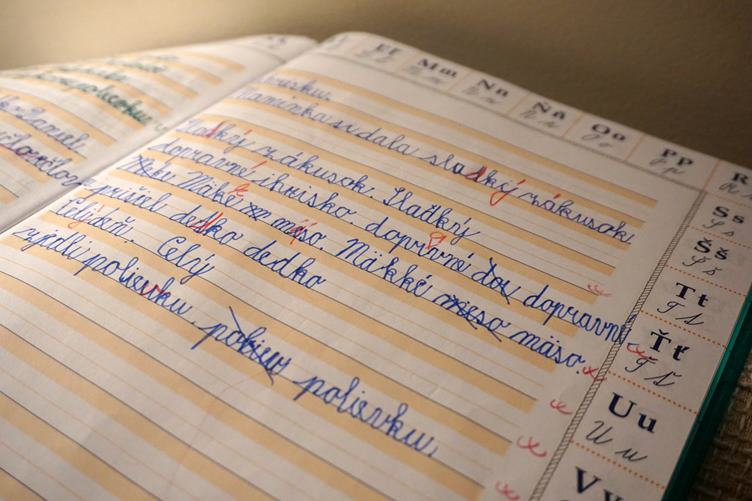 polievku.
Daniel.
ihrisku.
Maminka si dala sladký zákusok.
Sladký zákusok. Sladký zákusok.
dopravné ihrisko. dopravné dopravné
Mäké mäso. Mäkké mäso.
prišiel dedko dedko
Celý deň. Celý
zjedli polievku. polievku.
Mm Nn Ňň Oo Pp R
Ss
Šš
Tt
Ťť
Uu
Vv